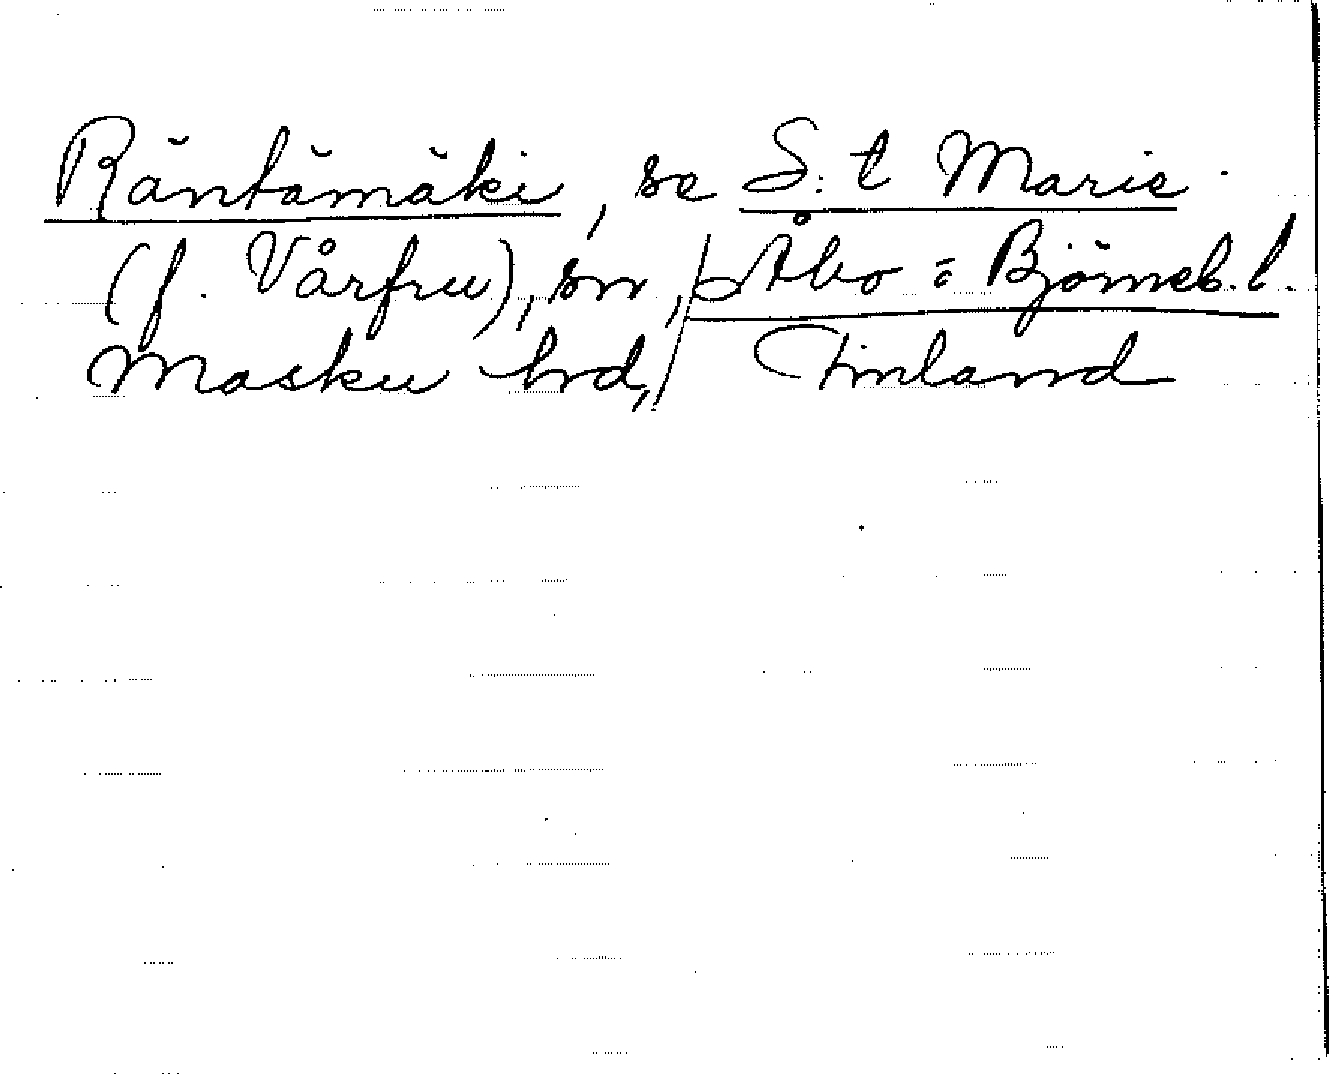 Räntämäki, se S:t Marie
(f. Vårfru), sn, Åbo = Björneb. l.
Masku hrd, Finland